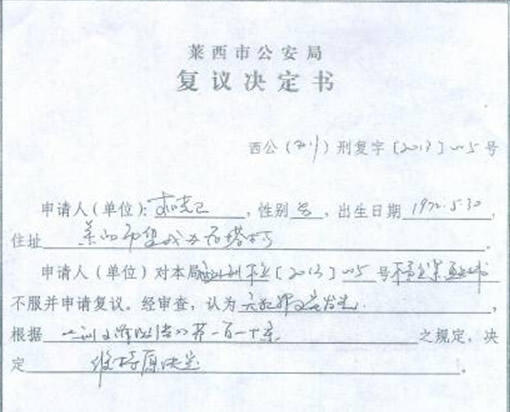 莱西市公安局
复议决定书
西公（刑）刑复字〔2013〕005号
申请人（单位）： ，性别 男 ，出生日期 1972.5.30 ，
住址 莱西市
申请人（单位）对本局 〔2013〕005号不予立案通知书
不服并申请复议。经审查，认为 无犯罪事实发生 ，
根据 第一百一十条 之规定，决
定 维持原决定